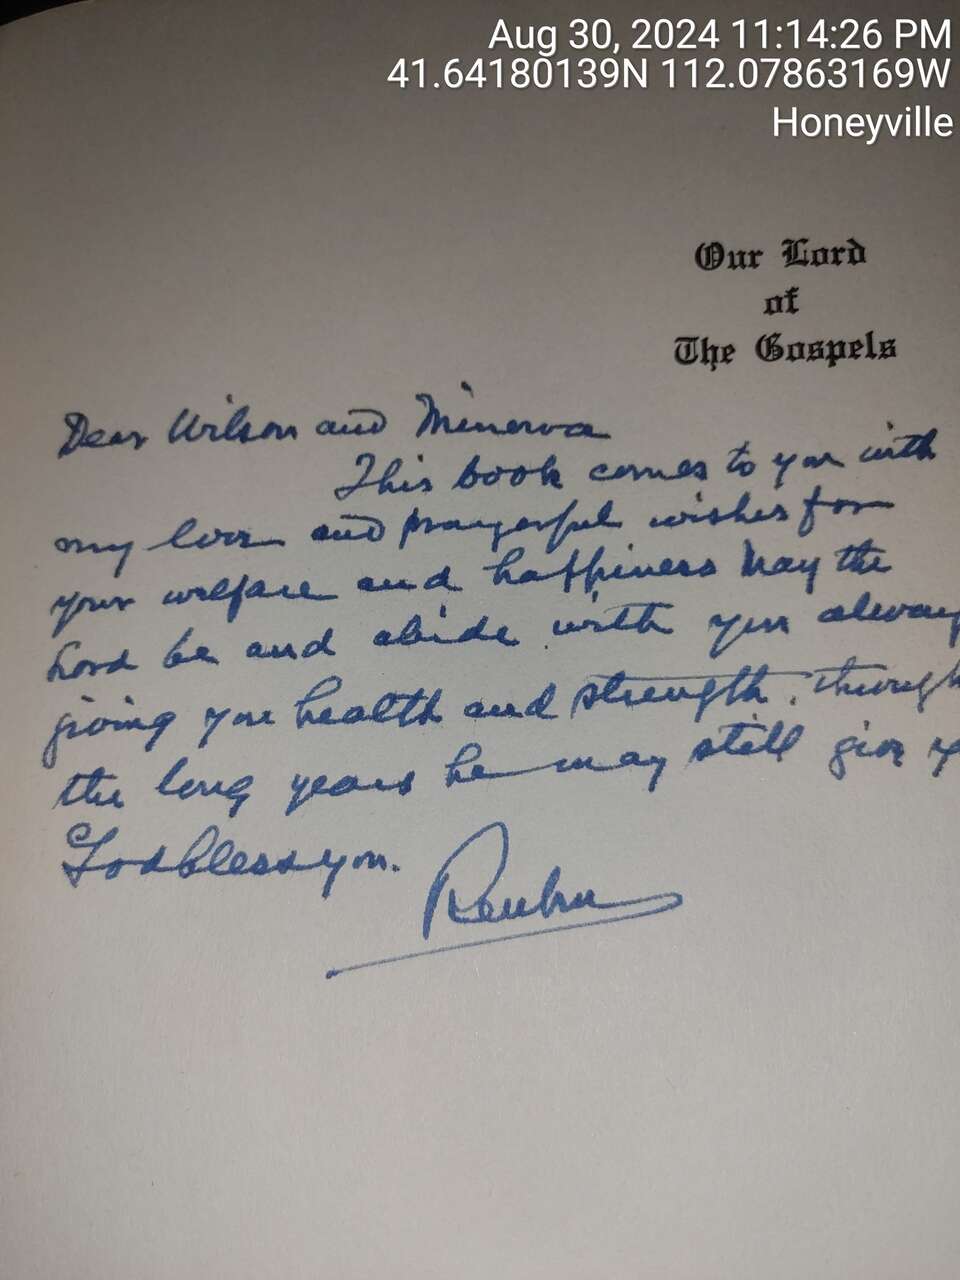 Aug 30, 2024 11:14:26 PM
41.64180139N 112.07863169W
Honeyville
Our Lord
of
The Gospels
Dear Wilson and Minerva
This book comes to you with
my love and prayerful wishes for
your welfare and happiness May the
Lord be and abide with you always
giving you health and strength, through
the long years he may still give y
God bless you.
Reuben